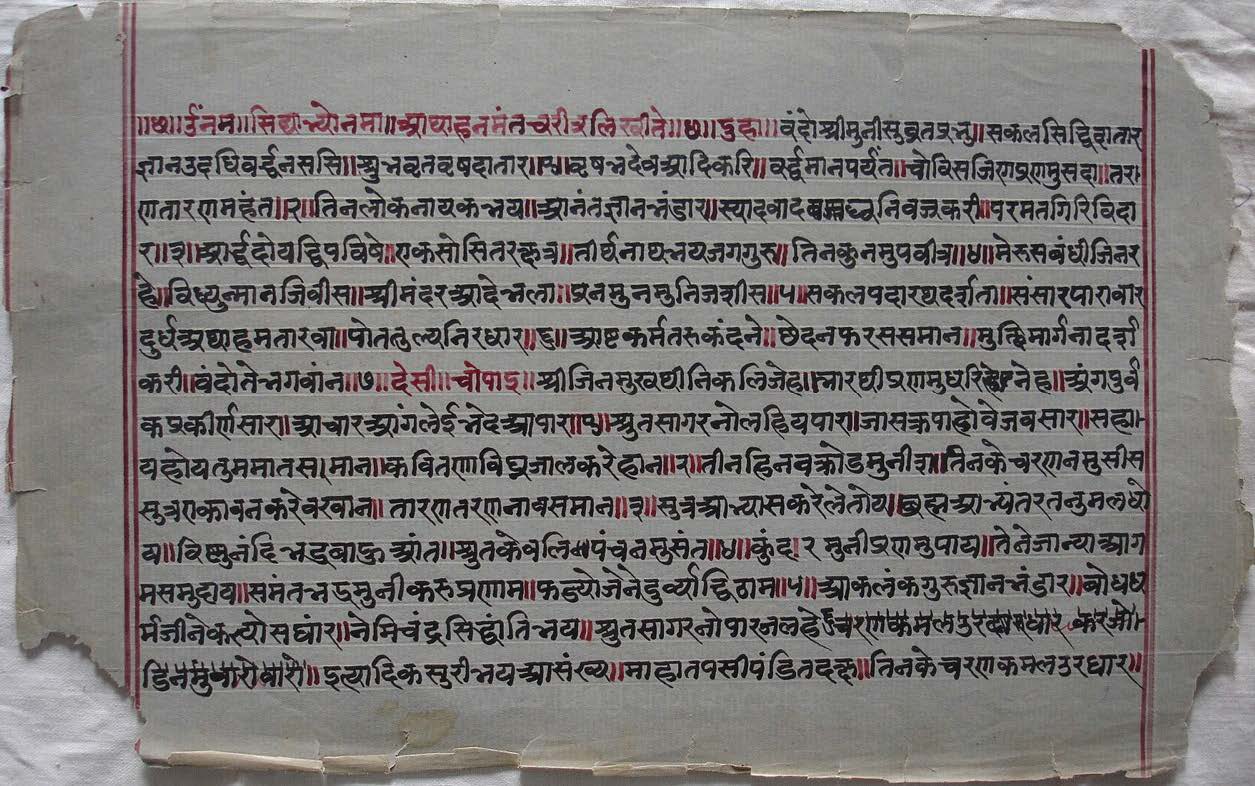 ॥छ॥ ॐ नम॥ सिद्धाभ्योनमा॥ अथ हनमंत चरीत्र लिखीते॥छ॥ दुहा॥ वंदो श्रीमुनीसुव्रत प्रभु॥ सकल सिद्धि दातार
ज्ञान उदधि वर्द्धन ससि॥ शुभ वृत वृष दातार॥१॥ वृषभदेव आदि करि॥ वर्द्धमान पर्यंत॥ चोविस जिण प्रणमु सदा॥ तरा
ण तारण महंत॥२॥ तिन लोक नायक भय॥ आनंत ज्ञान भंडार॥ स्यादवाद निवज्र करी॥ परमत गिरि विदा
र॥३॥ आर्द्ध दोय द्विप विषे॥ एकसो सितर क्षत्र॥ तीर्थनाथ भय जगगुरु॥ तिनकु नमु पवीत्र॥४॥ मेरु सबंधी जिन र
हे॥ विध्युन्मान जि वीस॥ श्रीमंदर आदे भला॥ प्रनमु नमु निज शीस॥५॥ सकल पदारथ दर्शता॥ संसार पारावार
दुर्ध अथाह मतारवा॥ पोत तुल्य निरधार॥६॥ आष्ट कर्म तरु कंदने॥ छेदन फरस समान॥ मुक्तिमार्गना दर्श
करी॥ वंदो ते भगवांन॥७॥ देसी॥ चोपाइ॥ श्री जिन मुख थी निकलि जेह॥ भारथी प्रणमु धरि नेह॥ अंग पुर्व
क प्रकीर्ण सार॥ आचार आंग लेई भेद आपार॥१॥ श्रुत सागरनो लहिय पार॥ जास क्रपा होवे जव सार॥ सहा
य होय तुम मात समान॥ कवितणा विघ्न जाल करे हान॥२॥ तीन हिन नव क्रोड मुनीश॥ तिनके चरण नमु सीस
सुत्रणका वन करे वखान॥ तारण तरण नाव समान॥३॥ सुत्र आभ्यास करे ले तोय॥ ब्रह्म आभ्यंतर तनु मल धो
य॥ विष्णुनंदि भद्रबाहु आंत॥ श्रुतकेवलि पंच नमु संत॥४॥ कुंदार मुनी प्रणमु पाय॥ तेने जान्या आग
म समुदाय॥ समंतभद्र मुनी करु प्रणाम॥ फडयो जेने दुर्व्यादि ठाम॥५॥ आकलंक गुरु ज्ञान भंडार॥ बोध ध
र्म जीने कर्यो सघार॥ नेमिचंद्र सिद्धांति भय॥ श्रुत सागरनो पार ज लहे चरण कमल उर धार कर जो
डि नमु वारो वारो॥ इत्यादिक सुरी भय आसंख्य॥ माहा तपसी पंडित दक्ष॥ तिनके चरण कमल उर धार॥